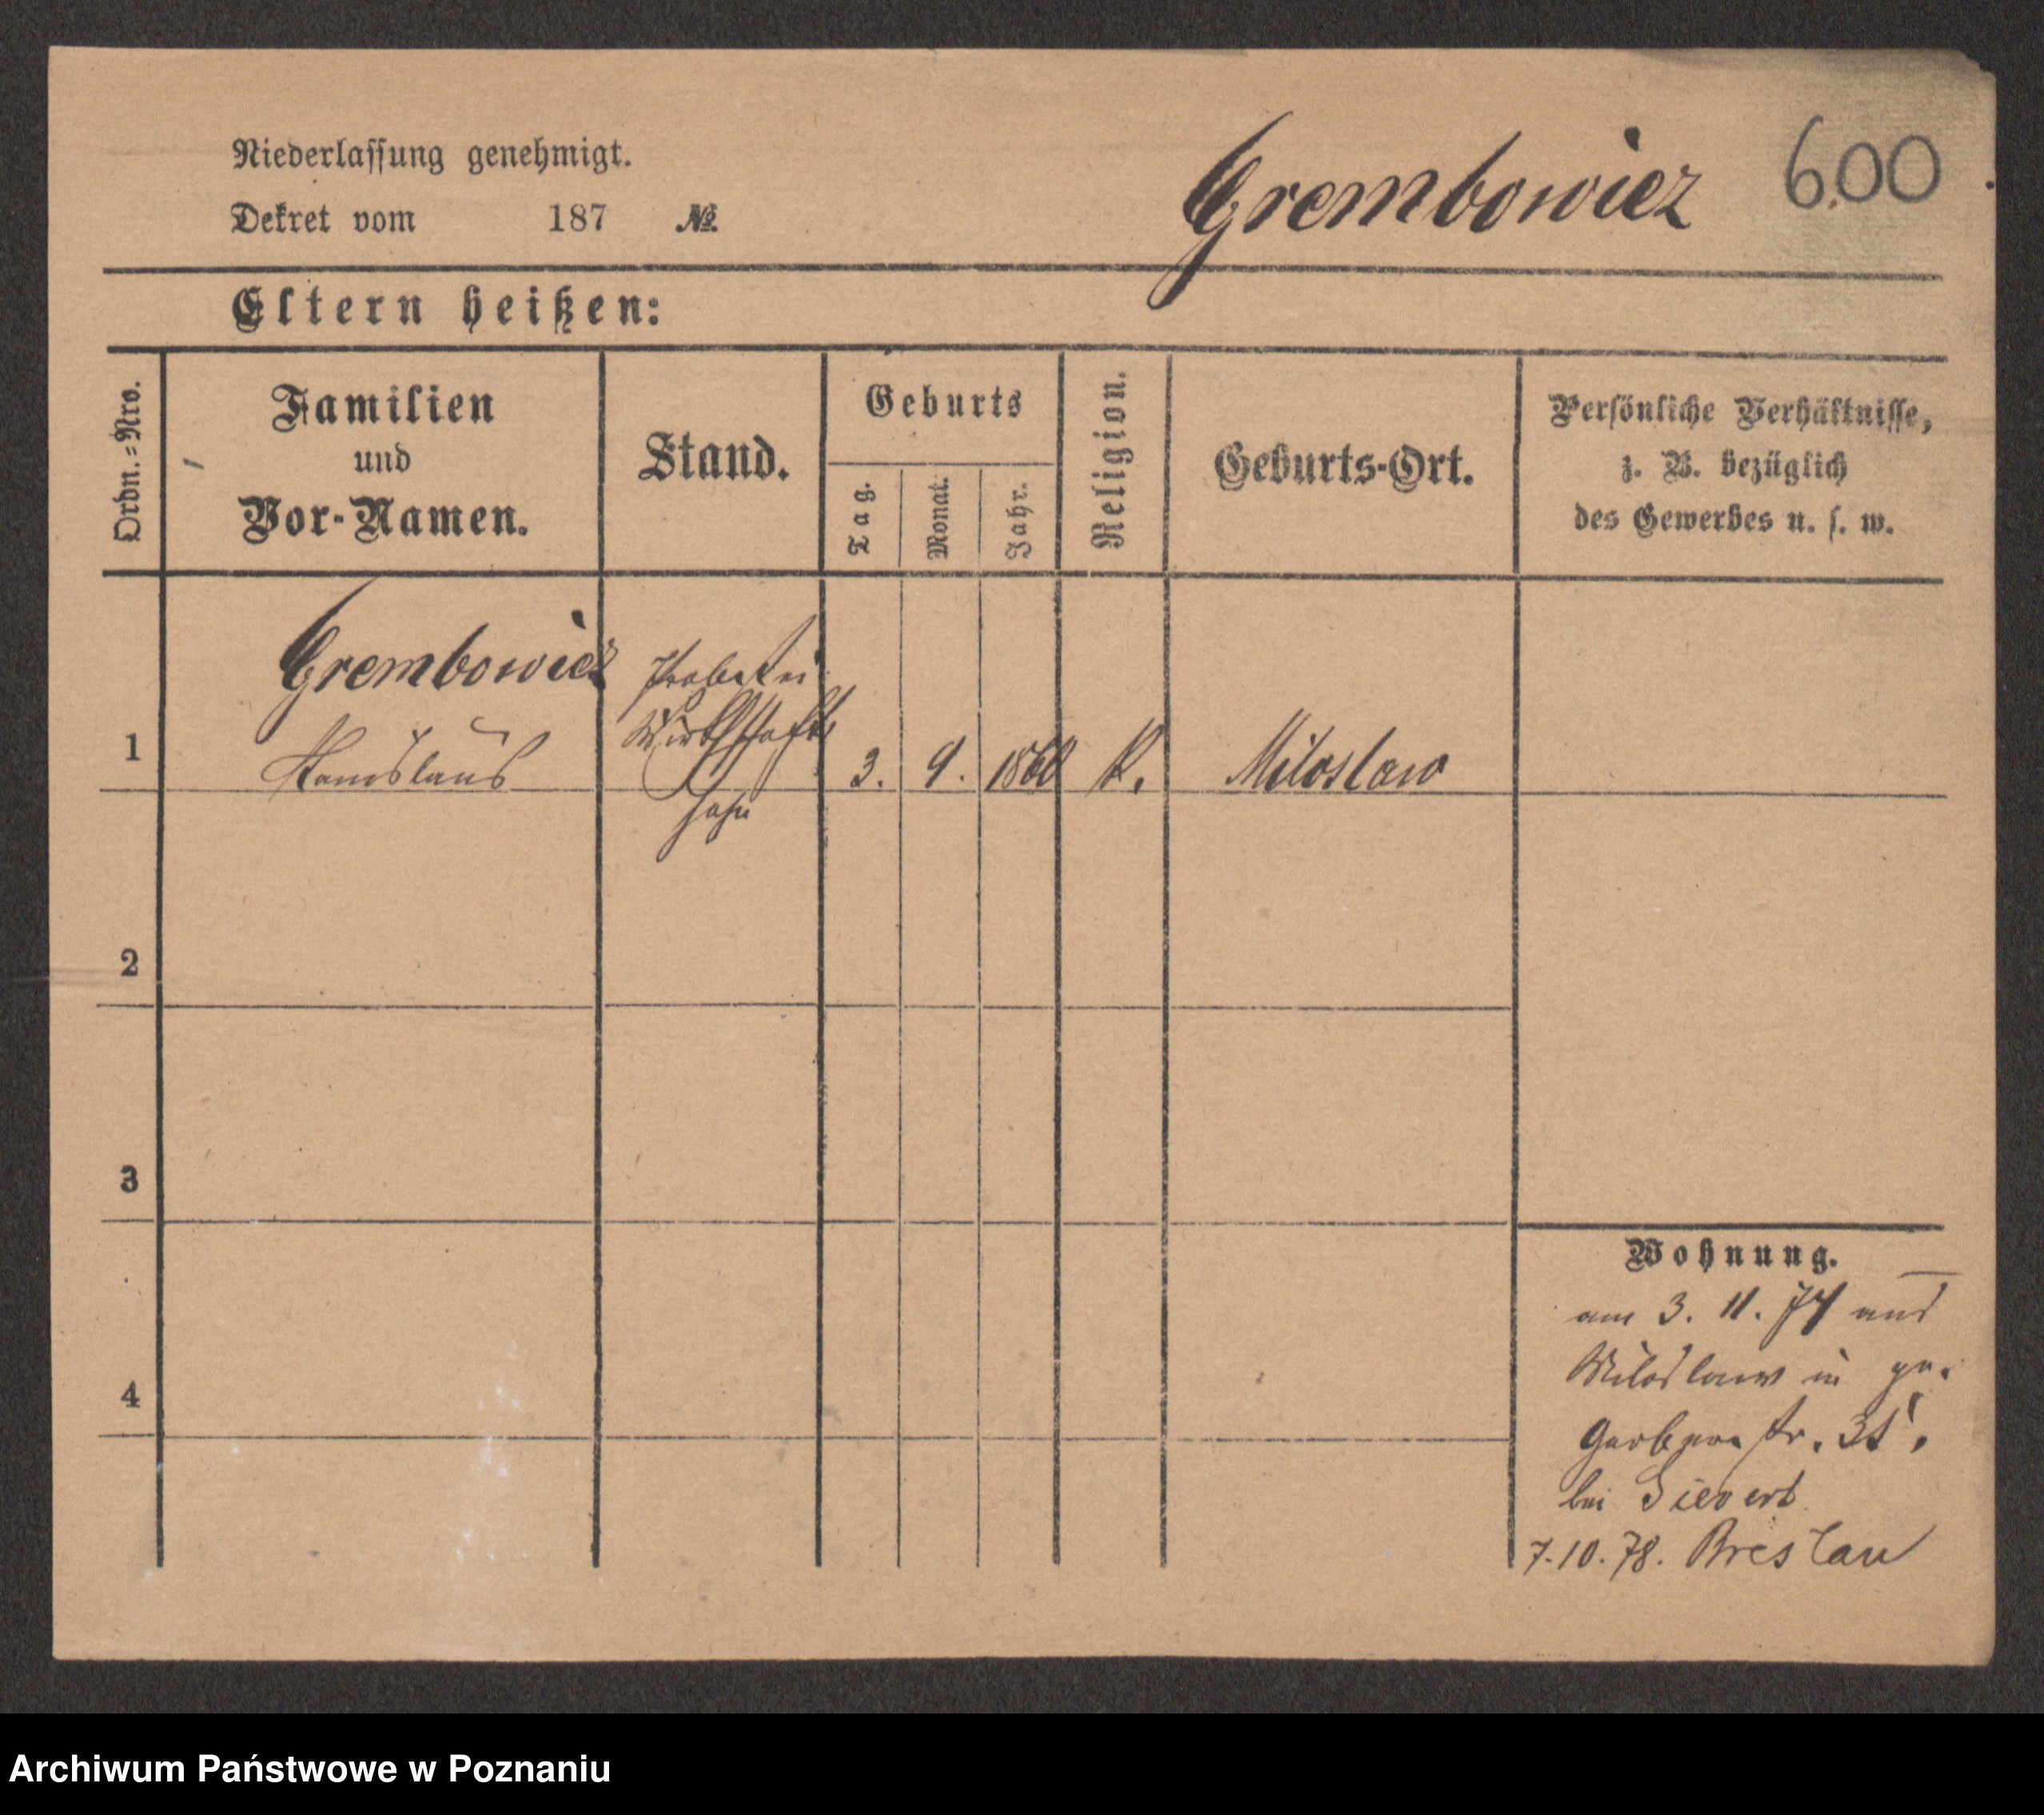 Niederlassung genehmigt.
Grembowicz 600
Dekret vom 187 №
Eltern heißen:
Ordn.=Nro.
Familien
und
Vor-Namen.
Stand.
Geburts
Tag.
Monat.
Jahr.
Religion.
Geburts-Ort.
Persönliche Verhältnisse,
z. B. bezüglich
des Gewerbes u. s. w.
Grembowicz
Stanislaus
Probstei
Wirthschafts
sohn
1 3. 9. 1860 K. Miloslaw
2
3
4
Wohnung.
am 3. 11. 74 aus
Miloslaw in
Gerberstr. 31,
bei Sievert
7.10.78. Breslau
Archiwum Państwowe w Poznaniu